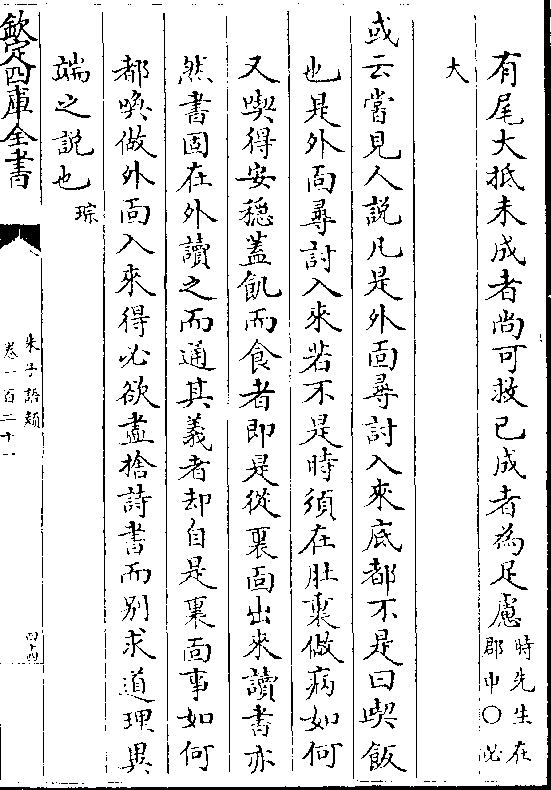 有尾大抵未成者尚可救已成者為足慮時先生在郡中〇必
大
或云嘗見人説凡是外面尋討入來底都不是曰喫飯
也是外面尋討入來若不是時須在肚裏做病如何
又喫得安穏蓋飢而食者即是從裏面出來讀書亦
然書固在外讀之而通其義者却自是裏面事如何
都喚做外面入來得必欲盡捨詩書而别求道理異
端之説也琮
欽定四庫全書
朱子語類
卷一百二十一
四十四